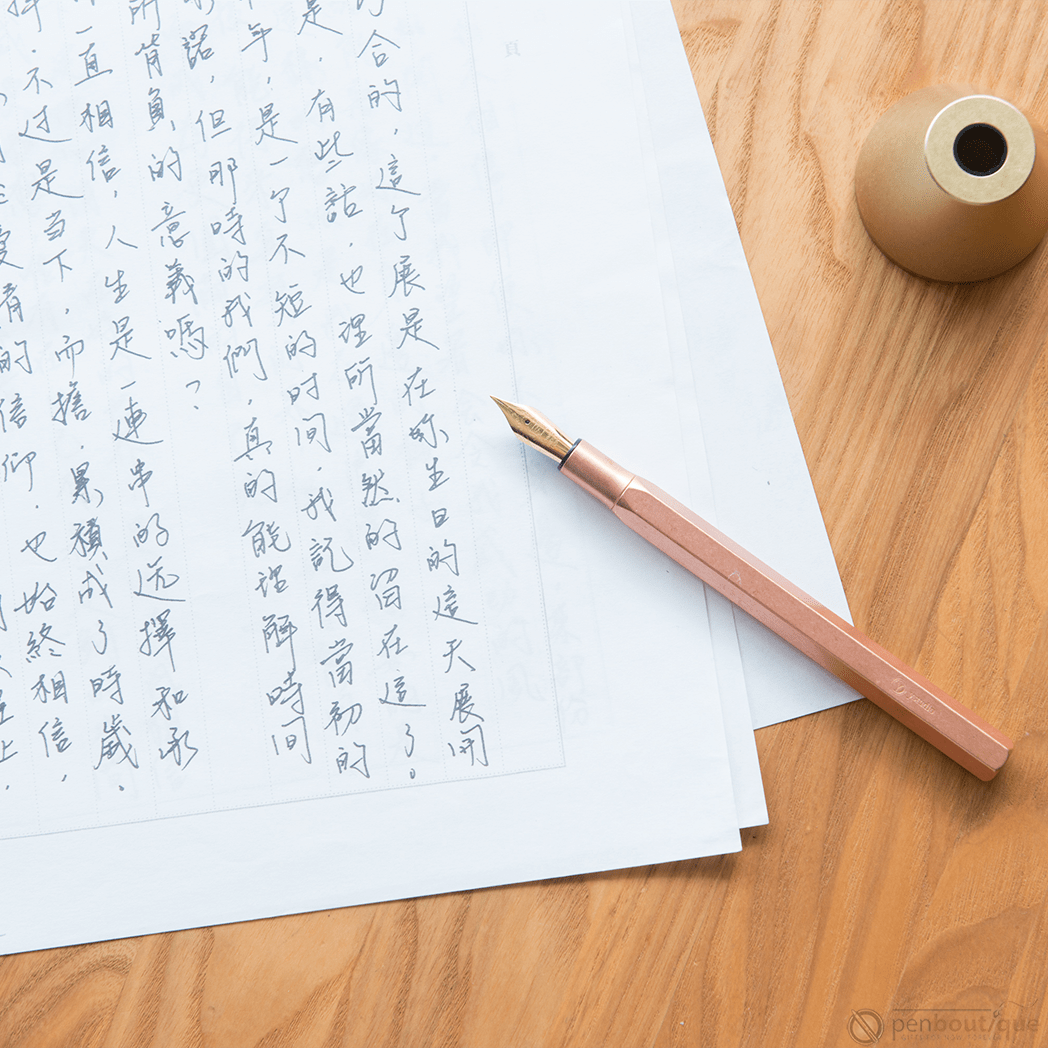 合的，這个展是在妳生日的這天展開
是，有些話，也理所當然的留在這了。
年，是一个不短的时间，我記得當初的
諾，但那時的我們，真的能理解時间
所背負的意義嗎？
一直相信，人生是一連串的选擇和承
不过是当下，而擔，累積成了時歲。
的信仰，也始終相信，
上，
ystudio
penboutique